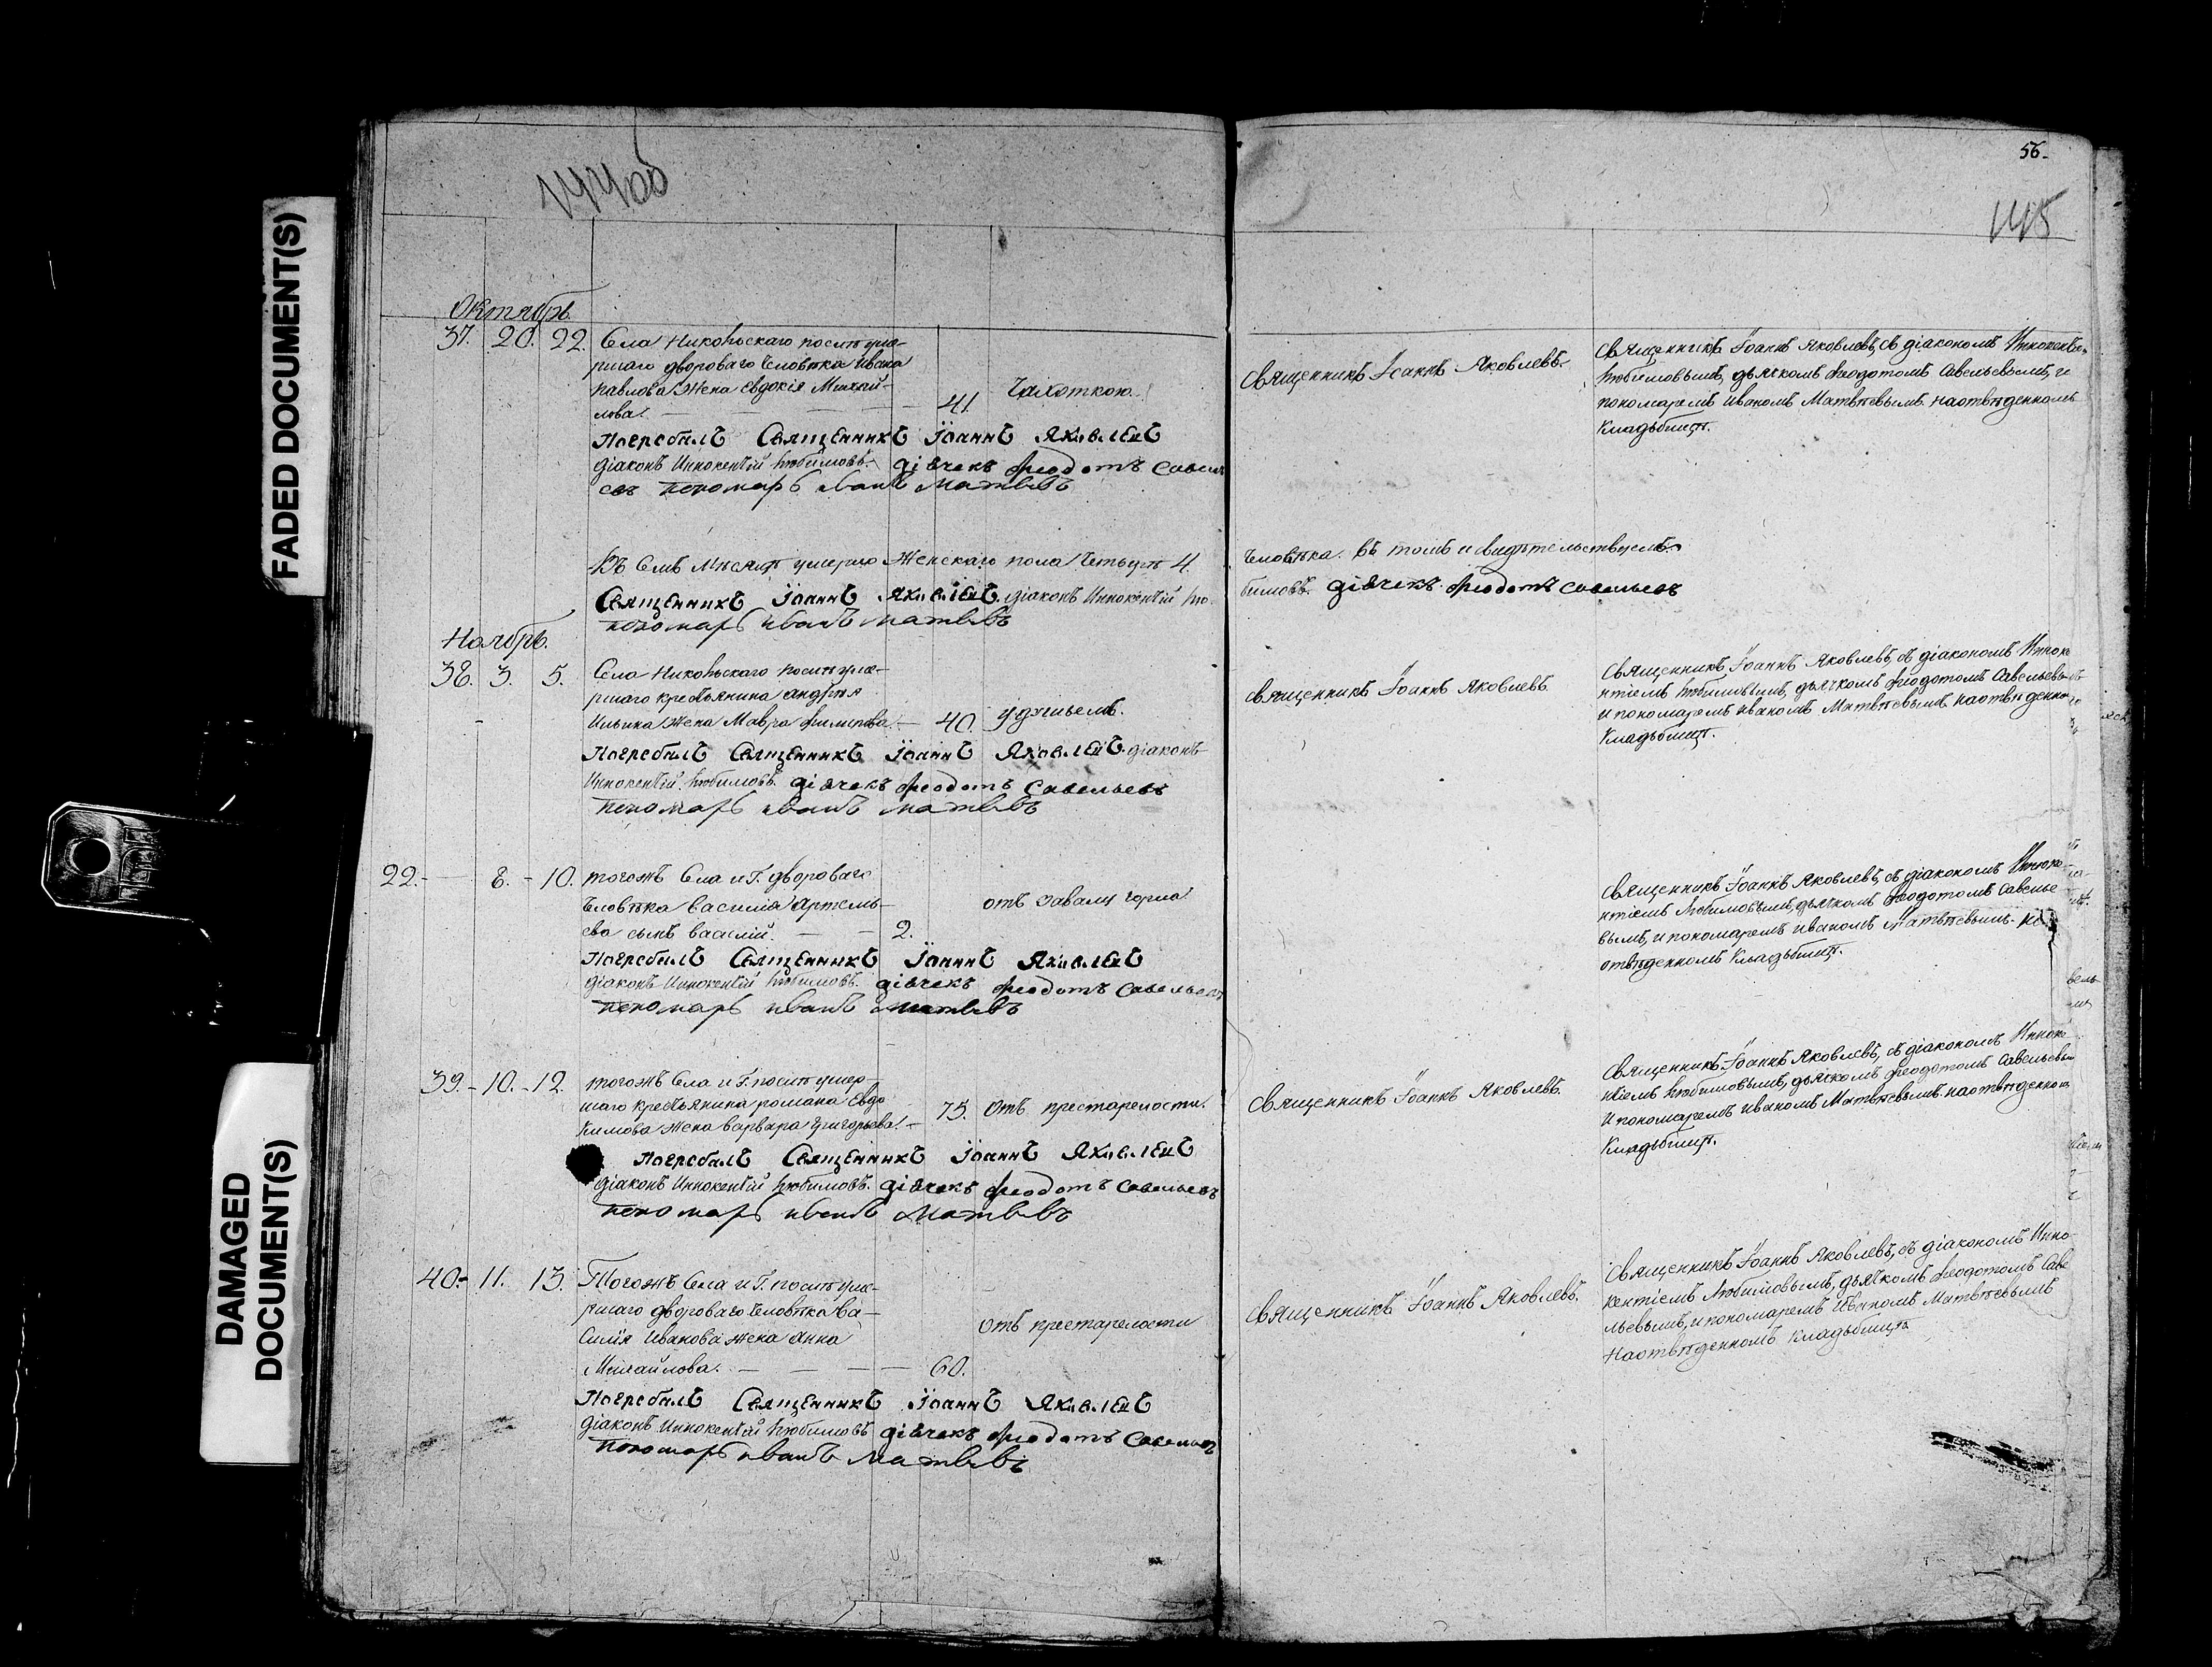 FADED DOCUMENT(S)
DAMAGED
DOCUMENT(S)
144об
Октябрь.
37. 20. 22. Села Никольскаго послѣ уме-
ршаго двороваго человѣка Ивана
Павлова жена Евдокія Михай-
лова. 41. Чахоткою.
Погребалъ Священникъ Іоаннъ Яковлевъ
діаконъ Иннокентій Любимовъ. діячекъ Феодотъ Савель
евъ пономарь Иванъ Матвѣвъ
Въ Семъ Мѣсяцѣ умерло Женскаго пола Четыре 4.
Священникъ Іоаннъ Яковлевъ. діаконъ Иннокентій Лю-
пономарь Иванъ Матвѣвъ
Ноябрь.
38. 3. 5. Села Никольскаго послѣ уме-
ршаго крестьянина Андрея
Ильина жена Мавра Филипова. 40. удушьемъ.
Погребалъ Священникъ Іоаннъ Яковлевъ. діаконъ
Иннокентій Любимовъ. діячекъ Феодотъ Савельевъ
пономарь Иванъ Матвѣвъ
22. 8. 10. тогожъ Села и Г. двороваго
человѣка Василія Артемь-
ева сынъ Василій. 2. отъ завалу горла
Погребалъ Священникъ Іоаннъ Яковлевъ
діаконъ Иннокентій Любимовъ. діячекъ Феодотъ Савельевъ
пономарь Иванъ Матвѣвъ
39. 10. 12. тогожъ Села и Г. послѣ умер-
шаго крестьянина Романа Евдо
кимова жена Варвара Григорьева. 75. Отъ престарелости.
Погребалъ Священникъ Іоаннъ Яковлевъ
діаконъ Иннокентій Любимовъ. діячекъ Феодотъ Савельевъ
пономарь Иванъ Матвѣвъ
40. 11. 13. Тогожъ Села и Г. послѣ уме-
ршаго двороваго человѣка Ва-
силія Иванова жена Анна
Михайлова. 60. Отъ престарелости
Погребалъ Священникъ Іоаннъ Яковлевъ
діаконъ Иннокентій Любимовъ діячекъ Феодотъ Савельевъ
пономарь Иванъ Матвѣвъ
56.
145
Священникъ Іоаннъ Яковлевъ.
Священникъ Іоаннъ Яковлевъ, съ діакономъ Иннокентіе
Любимовымъ, дьячкомъ Феодотомъ Савельевымъ, и
пономаремъ Иваномъ Матвѣевымъ. на отвѣденномъ
Кладьбищѣ.
Человѣка. Въ томъ и свидѣтельствуемъ.
бимовъ. діячекъ Феодотъ Савельевъ
Священникъ Іоаннъ Яковлевъ.
Священникъ Іоаннъ Яковлевъ, съ діакономъ Инноке
нтіемъ Любимовымъ, дьячкомъ Феодотомъ Савельевы
и пономаремъ Иваномъ Матвѣевымъ. на отвѣденно
Кладьбищѣ.
Священникъ Іоаннъ Яковлевъ, съ діакономъ Инноке
нтіемъ Любимовымъ, дьячкомъ Феодотомъ Савелье
вымъ, и пономаремъ Иваномъ Матвѣевымъ. на
отвѣденномъ Кладьбищѣ.
Священникъ Іоаннъ Яковлевъ.
Священникъ Іоаннъ Яковлевъ, съ діакономъ Инноке
нтіемъ Любимовымъ, дьячкомъ Феодотомъ Савельевы
и пономаремъ Иваномъ Матвѣевымъ. на отвѣденно
Кладьбищѣ.
Священникъ Іоаннъ Яковлевъ.
Священникъ Іоаннъ Яковлевъ, съ діакономъ Инно-
кентіемъ Любимовымъ, дьячкомъ Феодотомъ Саве
льевымъ, и пономаремъ Иваномъ Матвѣевымъ
На отвѣденномъ Кладьбищѣ